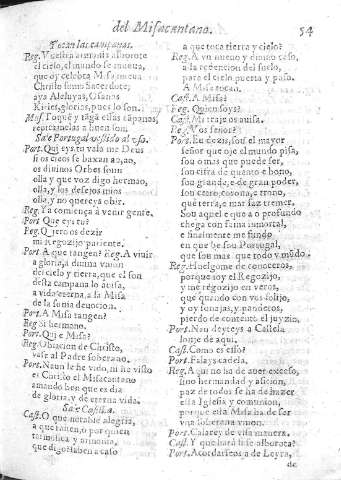 del Missacantano. 54
Tocan las campanas.
Reg. Vuestra armonia alborote
el cielo, el mundo se mueva,
que oy celebra Missa nueva
Christo sumo Sacerdote;
aya Aleluyas, Osanas
Kiries, glorias, pues lo son.
Mus. Toquē y tagā estas cāpanas,
repicamelas a buen son.
Sale Portugal vestido al vso.
Port. Qui eys, ta valo me Deus
si os ceos se baxan ao, ao,
os diuinos Orbes sonn
olla y que voz digo hermao,
olla, y los desejos mios
olla, y no quereys obir.
Reg. Ya comença à venir gente.
Port Que eys tu?
Reg. Quiero os dezir
mi Regozijo pariente.
Port A que tangen? Reg. A viuir
a gloria, a diuina vnion
del cielo y tierra, que el son
desta campana lo auisa,
a vida eterna, a la Missa
de la sonia deuocion.
Port. A Missa tangen?
Reg Si hermano.
Port. Qui e Missa?
Reg. Obracion de Christo,
vase al Padre soberano.
Port. Naun le he vido, ni he visto
el Christo el Missacantano
amando ben que es dia
de gloria, y de eterna vida.
Sale Castilla.
Cast. O que notable alegria,
a que tañen, o por quien
harmonica y armonia,
que digo? saben acaso
a que toca tierra y cielo?
Reg. A vn nueuo y diuino zelo,
a la redencion del suelo,
para el cielo puerta y paso.
A Missa tocan.
Cast. A Missa?
Reg. Quien soys?
Cast. Mi traje os auisa.
Reg. Vos señor?
Port. Eu dezis, sou el mayor
señor que oje el mundo pisa,
sou o mas que puede ser,
sou cifra de quanto e bono,
sou grande, e de gran poder,
sou cetro, corona, e trono,
que terra, e mar faz tremer.
Sou aquel e que a o profundo
chega con fama inmortal,
e finalmente me fundo
en que he sou Portugal,
que sou mas que todo o mūdo.
Reg. Huelgome de conoceros,
porque soy el Regozijo,
y me regozijo en veros,
que quando con vos colijo,
y oy tonajas, y panderos,
pierdo de contento el juyzio.
Port. Nan deyxeys a Castela
lonje de aqui.
Cast. Como es esso?
Port. Fala ya cadela.
Reg. Aqui no ha de auer excesso,
sino hermandad y aficion,
paz de todos se ha de hazer
esta Iglesia y comunion,
porque esta Missa ha de ser
vna soberana vnion.
Port. Calarey de esta manera.
Cast. Y que hará si se alborota?
Port. Acordarseos a de Leyra,
de